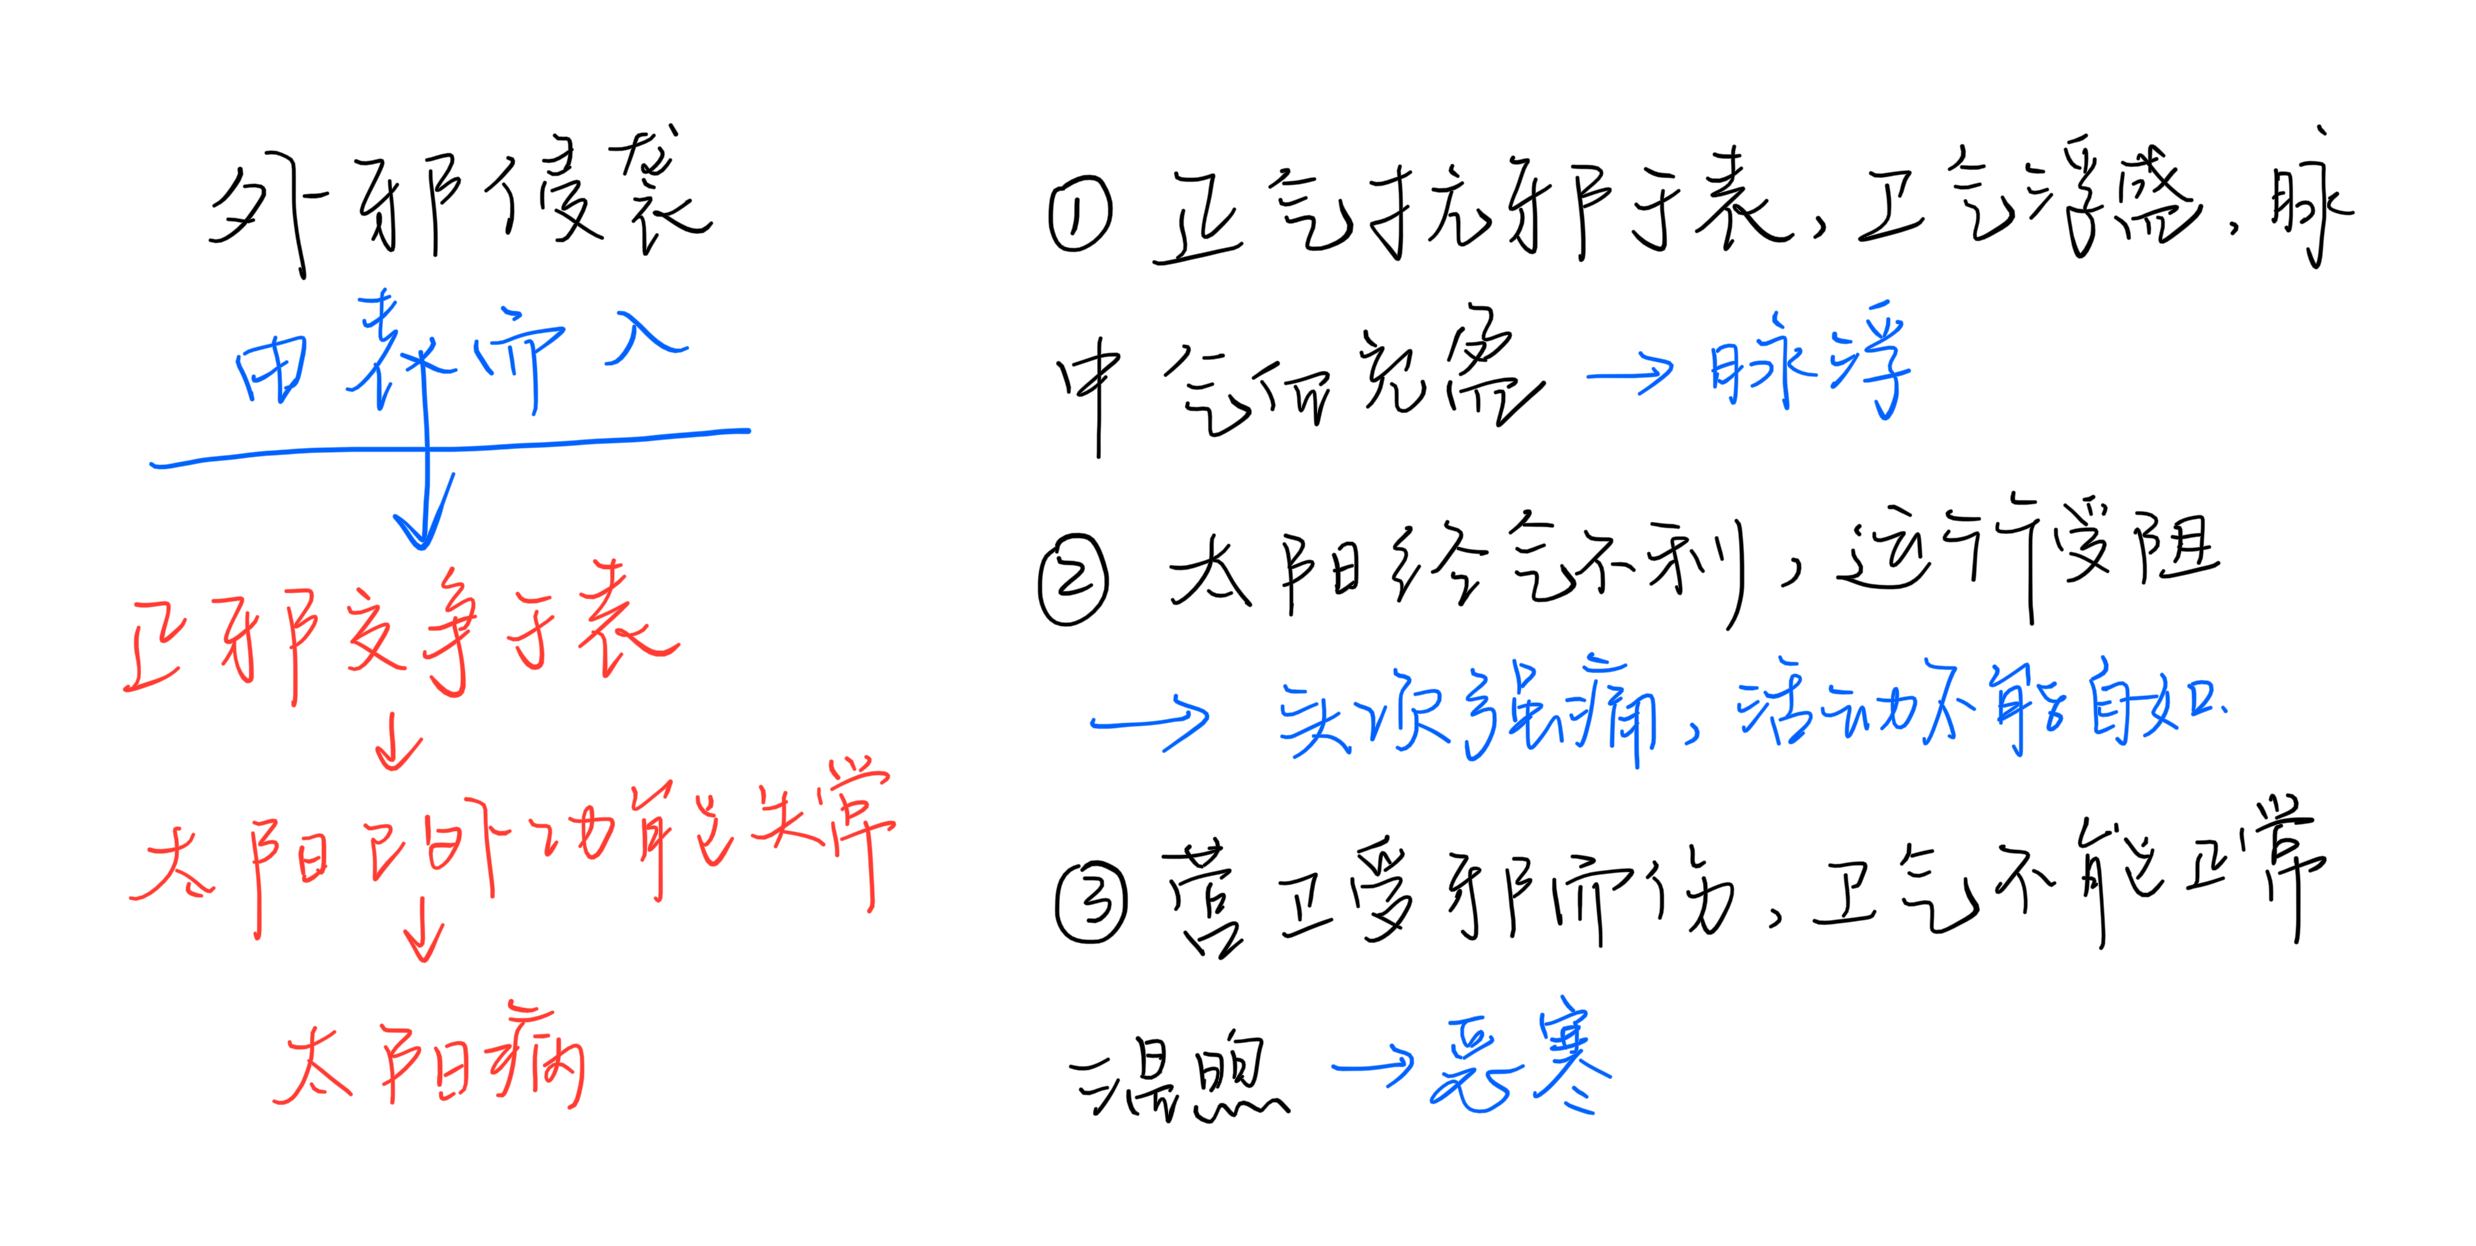 外邪侵袭
由表而入
正邪交争于表
↓
太阳卫外功能失常
↓
太阳病
① 正气抗邪于表,卫气浮盛,脉
中气血充盈 → 脉浮
② 太阳经气不利,运行受阻
→ 头项强痛,活动不能自如.
③ 营卫受邪而伤,卫气不能正常
温煦 → 恶寒